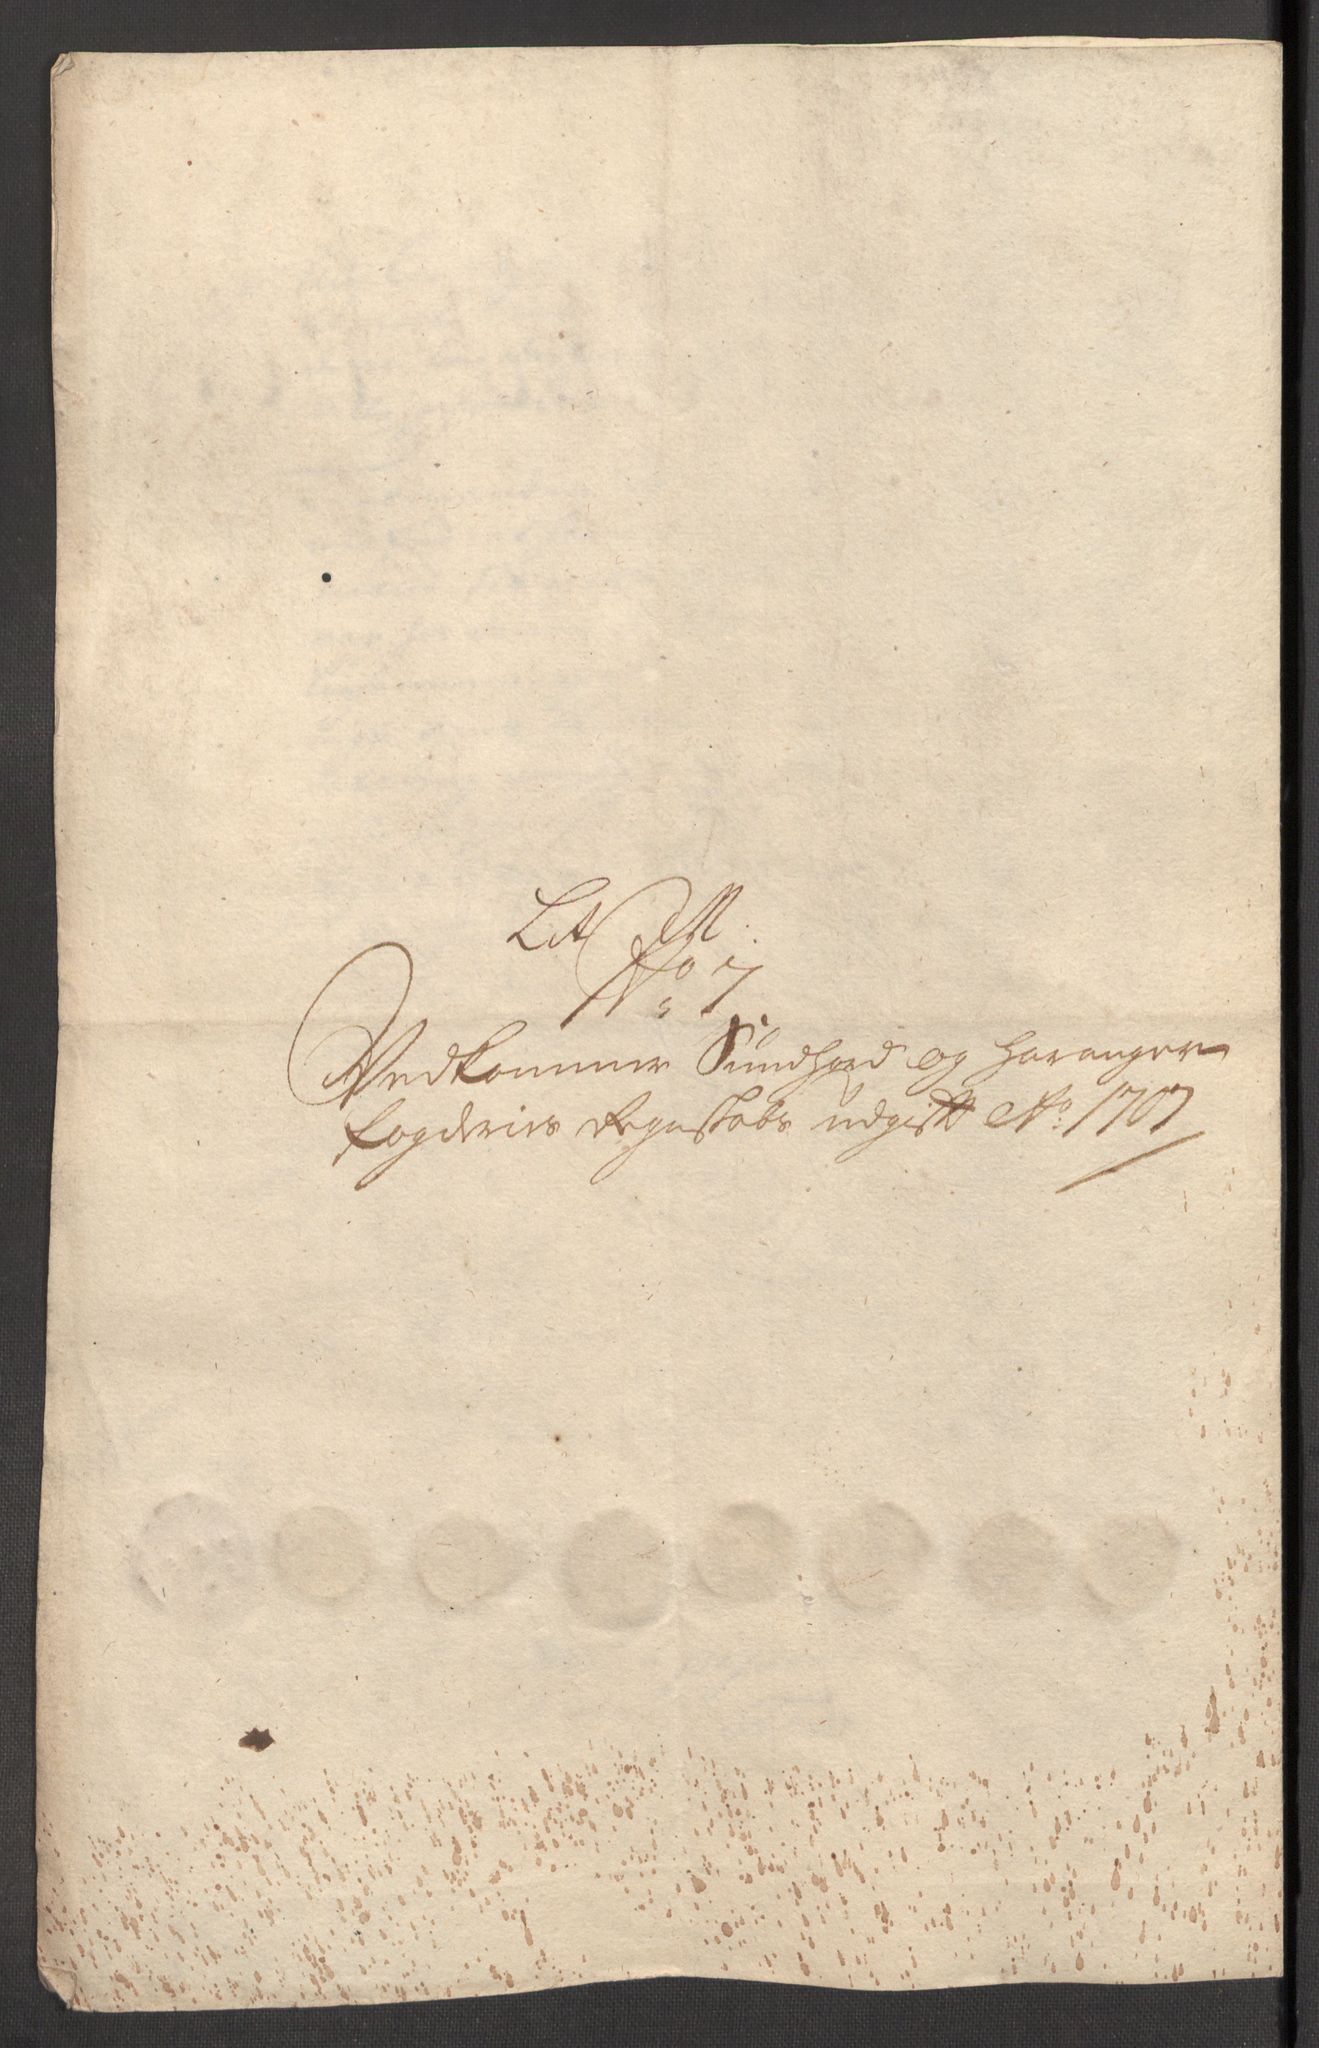 Lit M.
No: 7
Vedkommer Sundhord og Haranger
fogderies Regnskabs udgift Ao. 1707